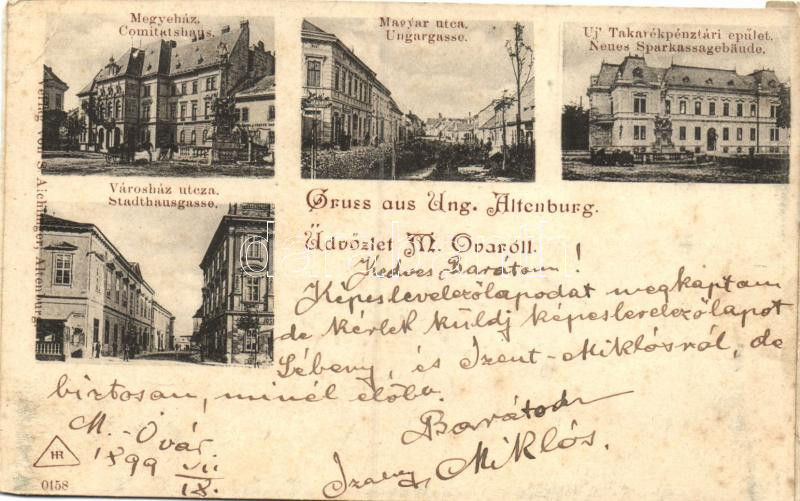 Megyeház.
Comitatshaus.
Magyar utca.
Ungargasse.
Uj' Takarékpénztári epület.
Neues Sparkassagebäude.
Városház utcza.
Stadthausgasse.
Verlag von S. Aichinger, Altenburg.
Gruss aus Ung. Altenburg.
Üdvözlet M. Óváról1.
Kedves Barátom!
Képeslevelezőlapodat megkaptam
de kérlek küldj képeslevelezőlapot
Lébeny, és Szent-Miklósról, de
biztosan, minél előbb.
M.-Óvár
1899 VII
18.
Barátod
Miklós.
HR
0158